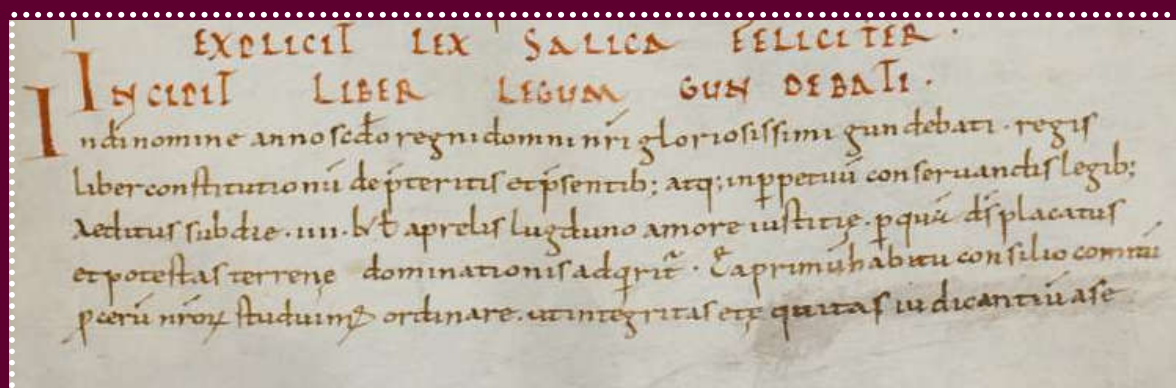 EXPLICIT LEX SALICA FELICITER ·
INCIPIT LIBER LEGUM GUNDEBATI ·
In di nomine anno scdo regni domni nri gloriosissimi gundebati · regis
liber constitutionū de p̄teritis et p̄sentib; atq; in ꝑpetuū conseruandis legib;
Aeditus sub die · iiii · aprelis lugduno amore iustitię · ꝑ quā ds̄ placatus
et potestas terrenę dominationis adqrit̄ · Ea primū habitu consilio
ꝓcerū nr̄oꝝ studuimꝰ ordinare · ut integritas et ęquitas iudicantiū a se